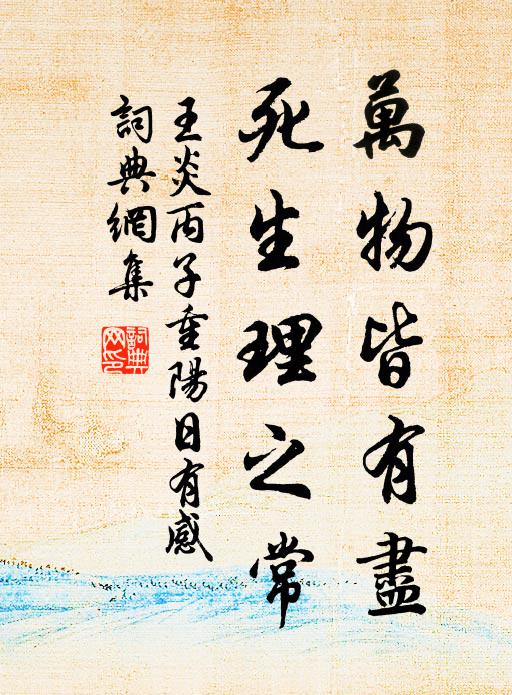 萬物皆有盡
死生理之常
王炎丙子重陽日有感
詞典網集
詞典
網印